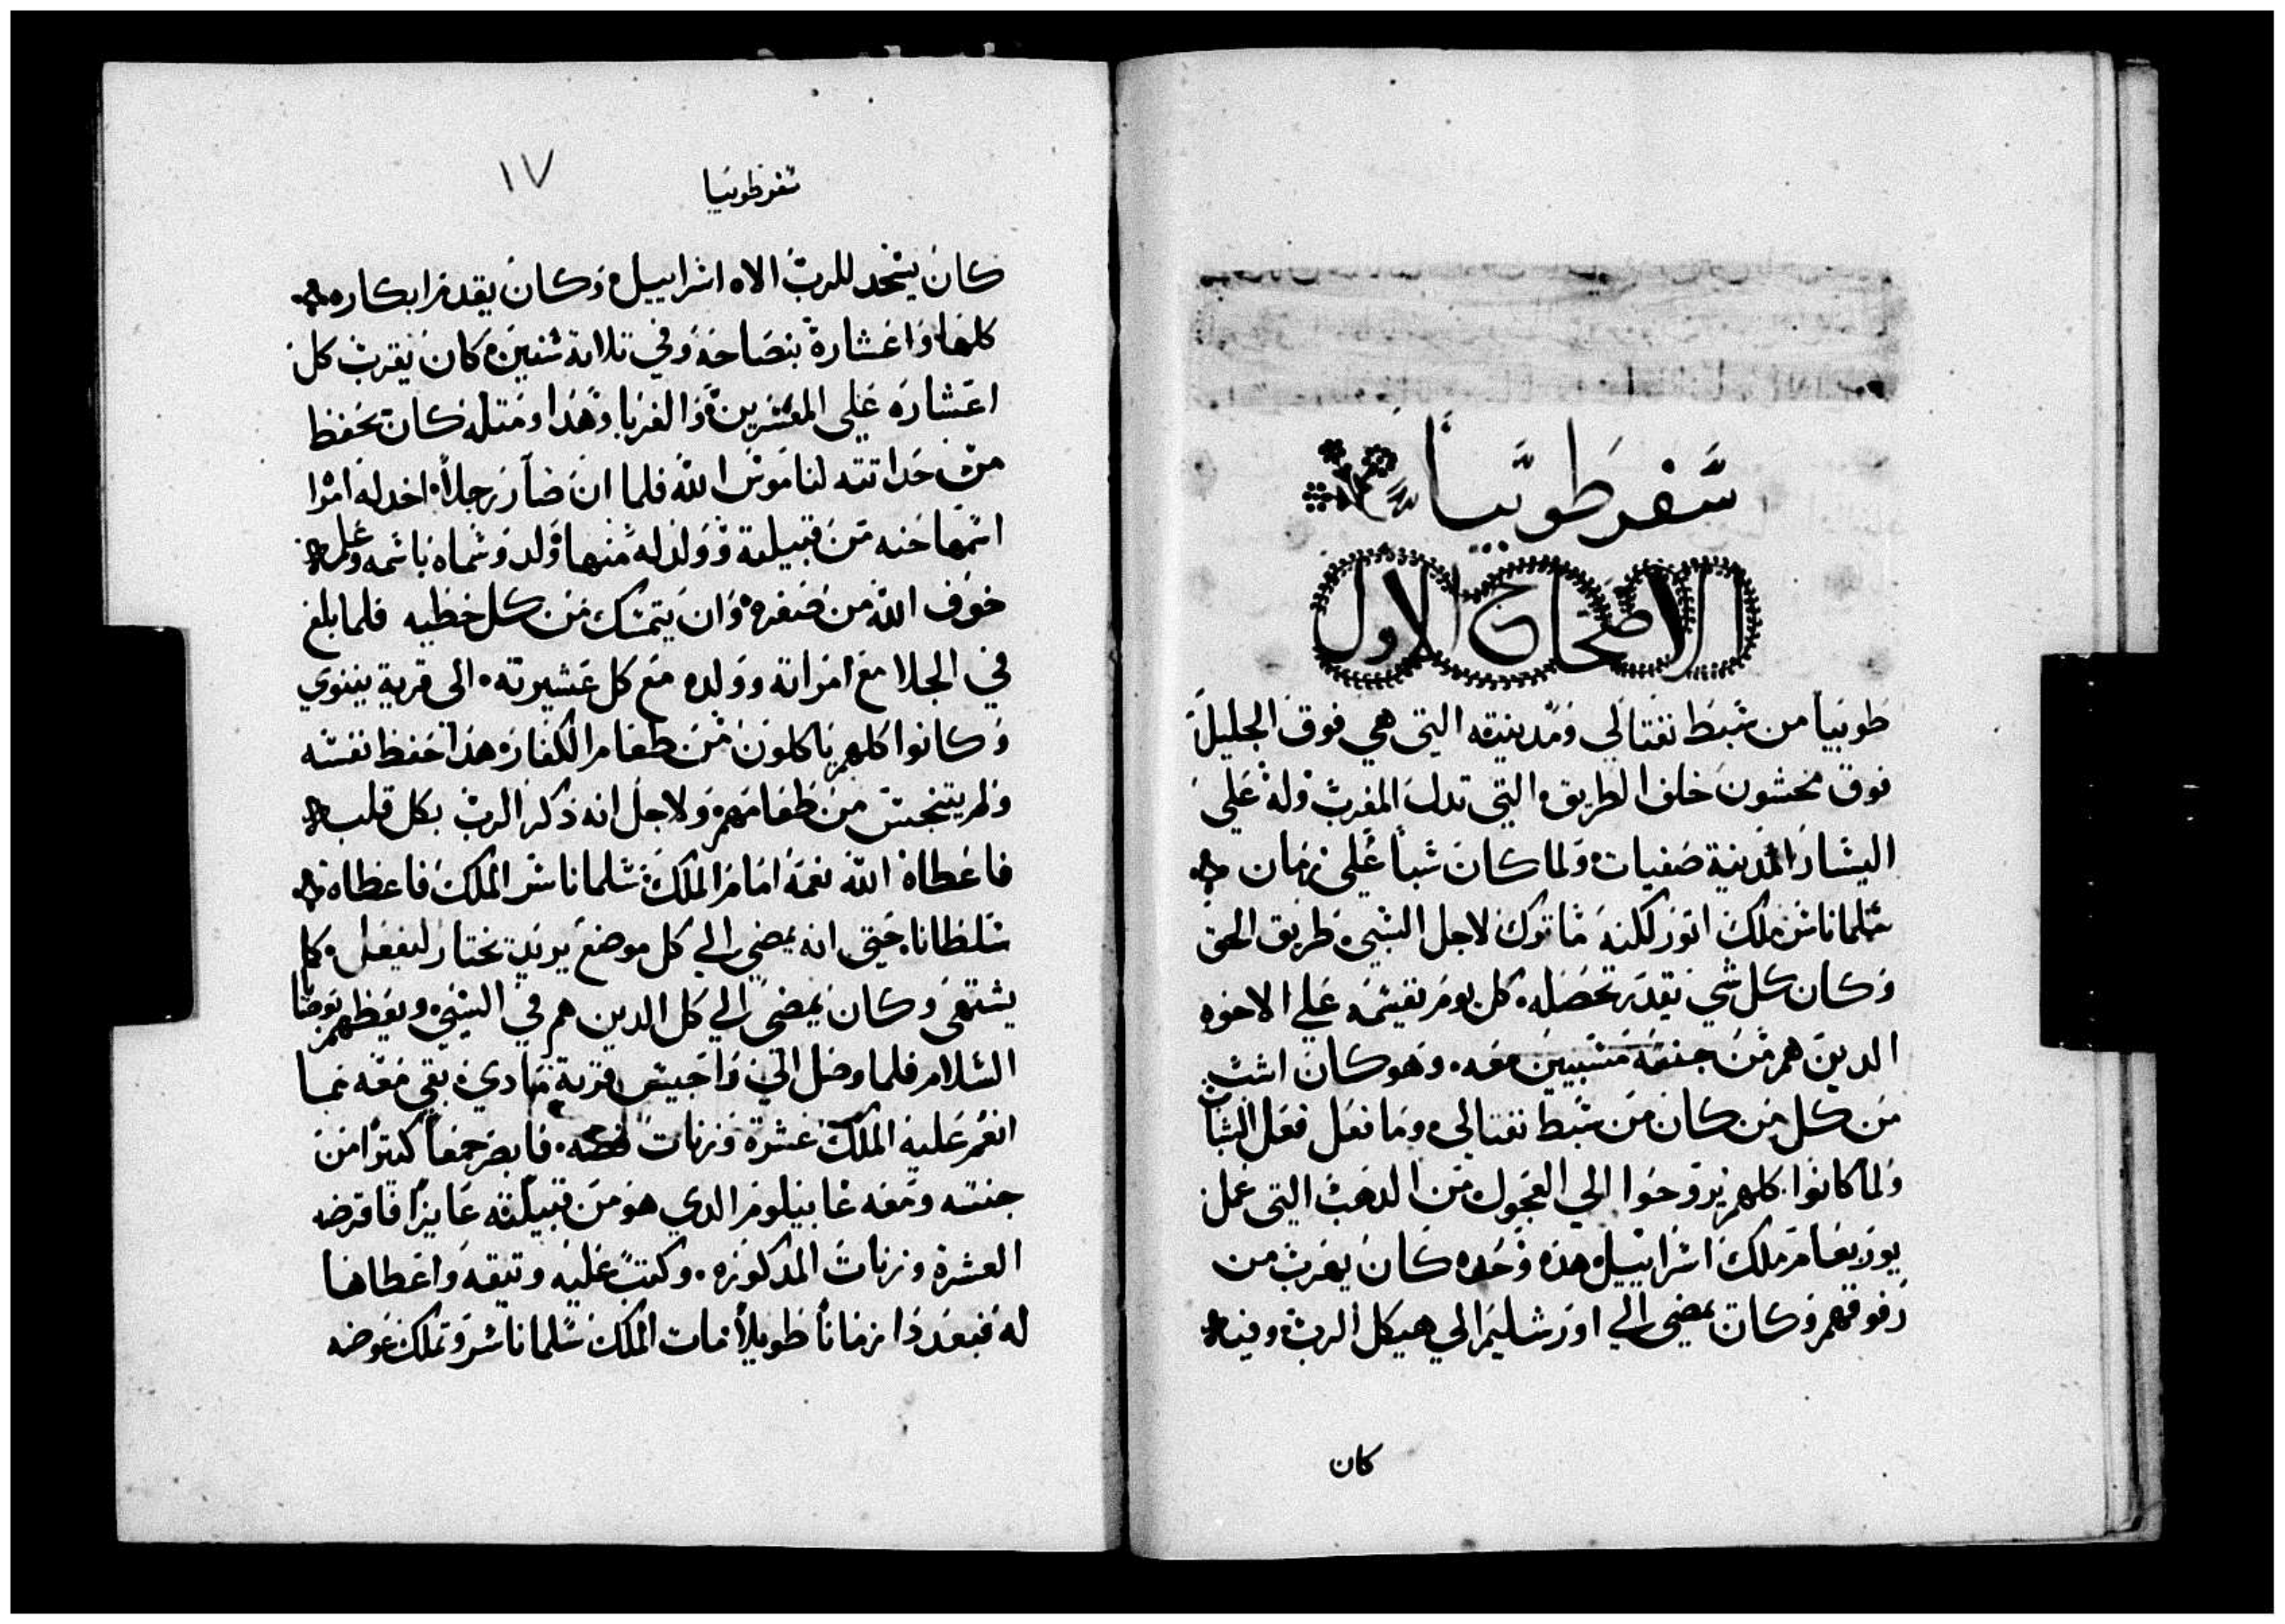 سفر طوبيا
الاصحاح الاول
طوبيا من سبط نفتالي ومدينته التي هي فوق الجليل
فوق نحشون خلف الطريق التي تدل المغرب وله علي
اليسار المدينة صفيات ولما كان سبا علي زمان
سلماناسر ملك اتور لكنه ما ترك لاجل السبي طريق الحق
وكان كل شي يقدر تحصله كل يوم يقسمه علي الاخوه
الدين هم من جنسه مسبيين معه وهو كان اشب
من كل من كان من سبط نفتالي وما فعل فعل الشبان
ولما كانوا كلهم يروحوا الي العجول من الدهب التي عمل
يوربعام ملك اسراييل هذه وحده كان يهرب من
رفوقهم وكان يمضي الي اورشليم الي هيكل الرب وفيه
كان
سفر طوبيا
١٧
كان يسجد للرب الاه اسراييل وكان يقدم ابكاره
كلها واعشاره بنصاحه وفي تلاتة سنين كان يقرب كل
اعشاره علي المعتنرين والغربا وهدا ومتله كان يحفظ
من حداتته لناموس الله فلما ان صار رجلا اخد له امرا
اسمها حنه من قبيلته وولد له منها ولد وسماه باسمه وعلمه
خوف الله من صغره وان يتمسك من كل خطيه فلما بلغ
في الجلا مع امراته وولده مع كل عشيرته الى قرية نينوي
وكانوا كلهم ياكلون من طعام الكفاره هدا حفظ نفسه
ولم يتنجس من طعامهم ولاجل انه ذكر الرب بكل قلبه
فاعطاه الله نعمه امام الملك سلماناسر الملك فاعطاه
سلطانا حتى انه يمضي الي كل موضع يريد يختار ليفعل كلما
يشتهى وكان يمضي الي كل الدين هم في السبي ويعظهم بوصايا
السلام فلما وصل الي راجيس قرية مادي بقي معه مما
انعم عليه الملك عشرة وزنات فضه فابصر جمعا كتيرا من
جنسه ومعه غابيلوم الدي هو من قبيلته عايزا فاقرضه
العشرة وزنات المدكوره وكتب عليه وتيقه واعطاها
له فبعد دا زمانا طويلا مات الملك سلماناسر وتملك عوضه